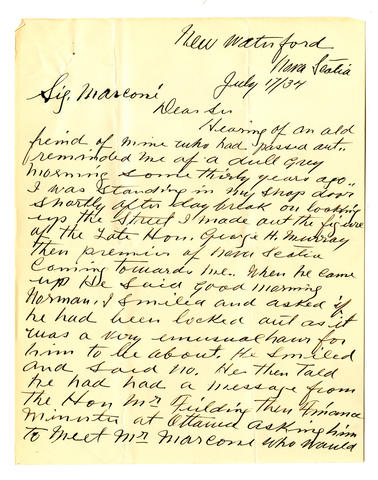 New Waterford
Nova Scotia
July 17/34
Sig. Marconi
Dear Sir
Hearing of an old
freind of mine who had passed out..
reminded me of a dull grey
morning some thirty years ago..
I was standing in my shop door
shortly after day break on looking
up the street I made out the figure
of the Late Hon. George H. Murray
then premier of Nova Scotia
coming towards me.. When he came
up He said good morning
Norman, I smiled and asked if
he had been locked out as it
was a very unusual hour for
him to be about. He smiled
and said no. He then told
he had had a message from
the Hon Mr Fielding then Finance
Minister at Ottawa asking him
to meet Mr Marconi who would